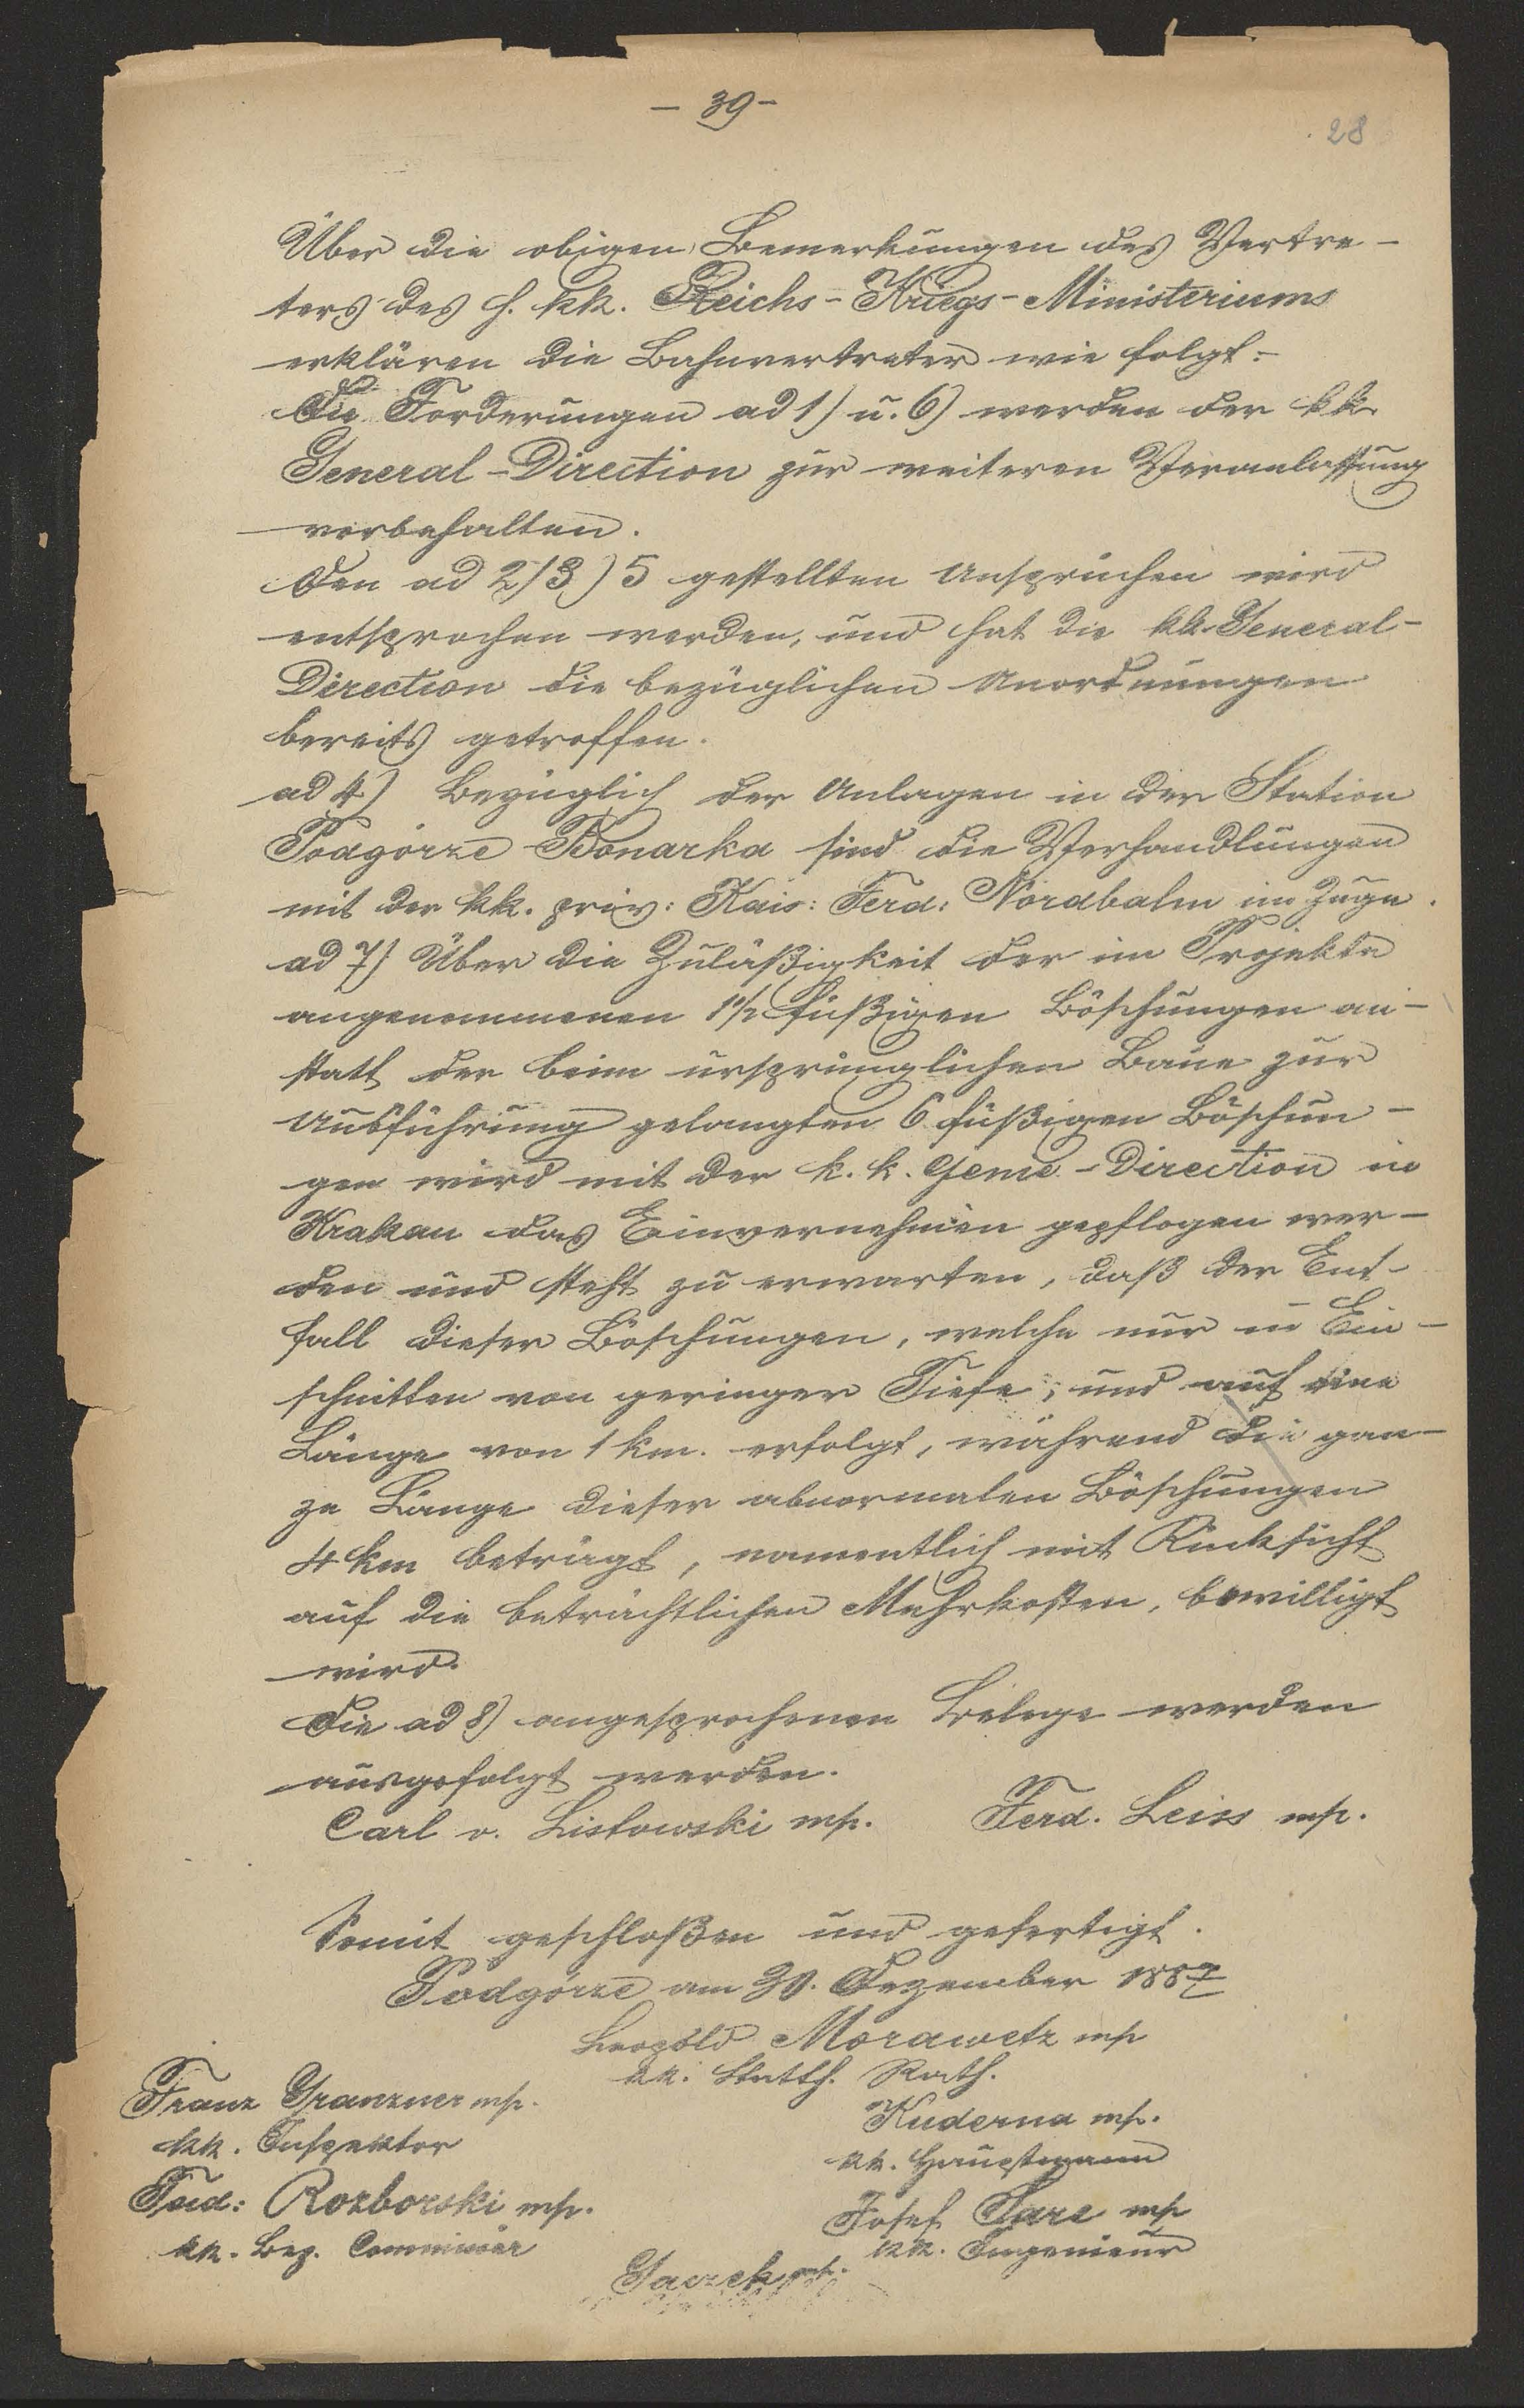 – 39 –
28
Über die obigen Bemerkungen des Vertre-
ters des h. kk. Reichs-Kriegs-Ministeriums
erklären die Bahnvertreter wie folgt:
Die Forderungen ad 1) u. 6) werden der kk.
General-Direction zur weiteren Veranlassung
vorbehalten.
Den ad 2) 3) 5 gestellten Ansprüchen wird
entsprochen werden, und hat die kk. General-
Direction die bezüglichen Anordnungen
bereits getroffen.
ad 4) Bezüglich der Anlagen in der Station
Podgórze-Bonarka sind die Verhandlungen
mit der kk. priv: Kais: Ferd: Nordbahn im Zuge.
ad 7) Über die Zuläßigkeit der im Projekte
angenommenen 1½ füßigen Böschungen an-
statt der beim ursprünglichen Baue zur
Ausführung gelangten 6 füßigen Böschun-
gen wird mit der k. k. Genie-Direction in
Krakau das Einvernehmen gepflogen wer-
den und steht zu erwarten, daß der Ent-
fall dieser Böschungen, welche nur in Ein-
schnitten von geringer Tiefe, und auf eine
Länge von 1 km. erfolgt, während die gan-
ze Länge dieser abnormalen Böschungen
4 km beträgt, namentlich mit Rücksicht
auf die beträchtlichen Mehrkosten, bewilligt
wird.
Die ad 8) angesprochenen Belege werden
ausgefolgt werden.
Carl v. Listowski mp. Ferd. Leiss mp.
Somit geschloßen und gefertigt.
Podgórze am 30. Dezember 1887
Leopold Morawetz mp
kk. Statth. Rath.
Franz Granzner mp.
kk. Inspektor
Kuderna mp.
kk. Hauptmann
Rozborski mp.
kk. Bez. Commissär
Josef Sare mp
kk. Ingenieur
mp.